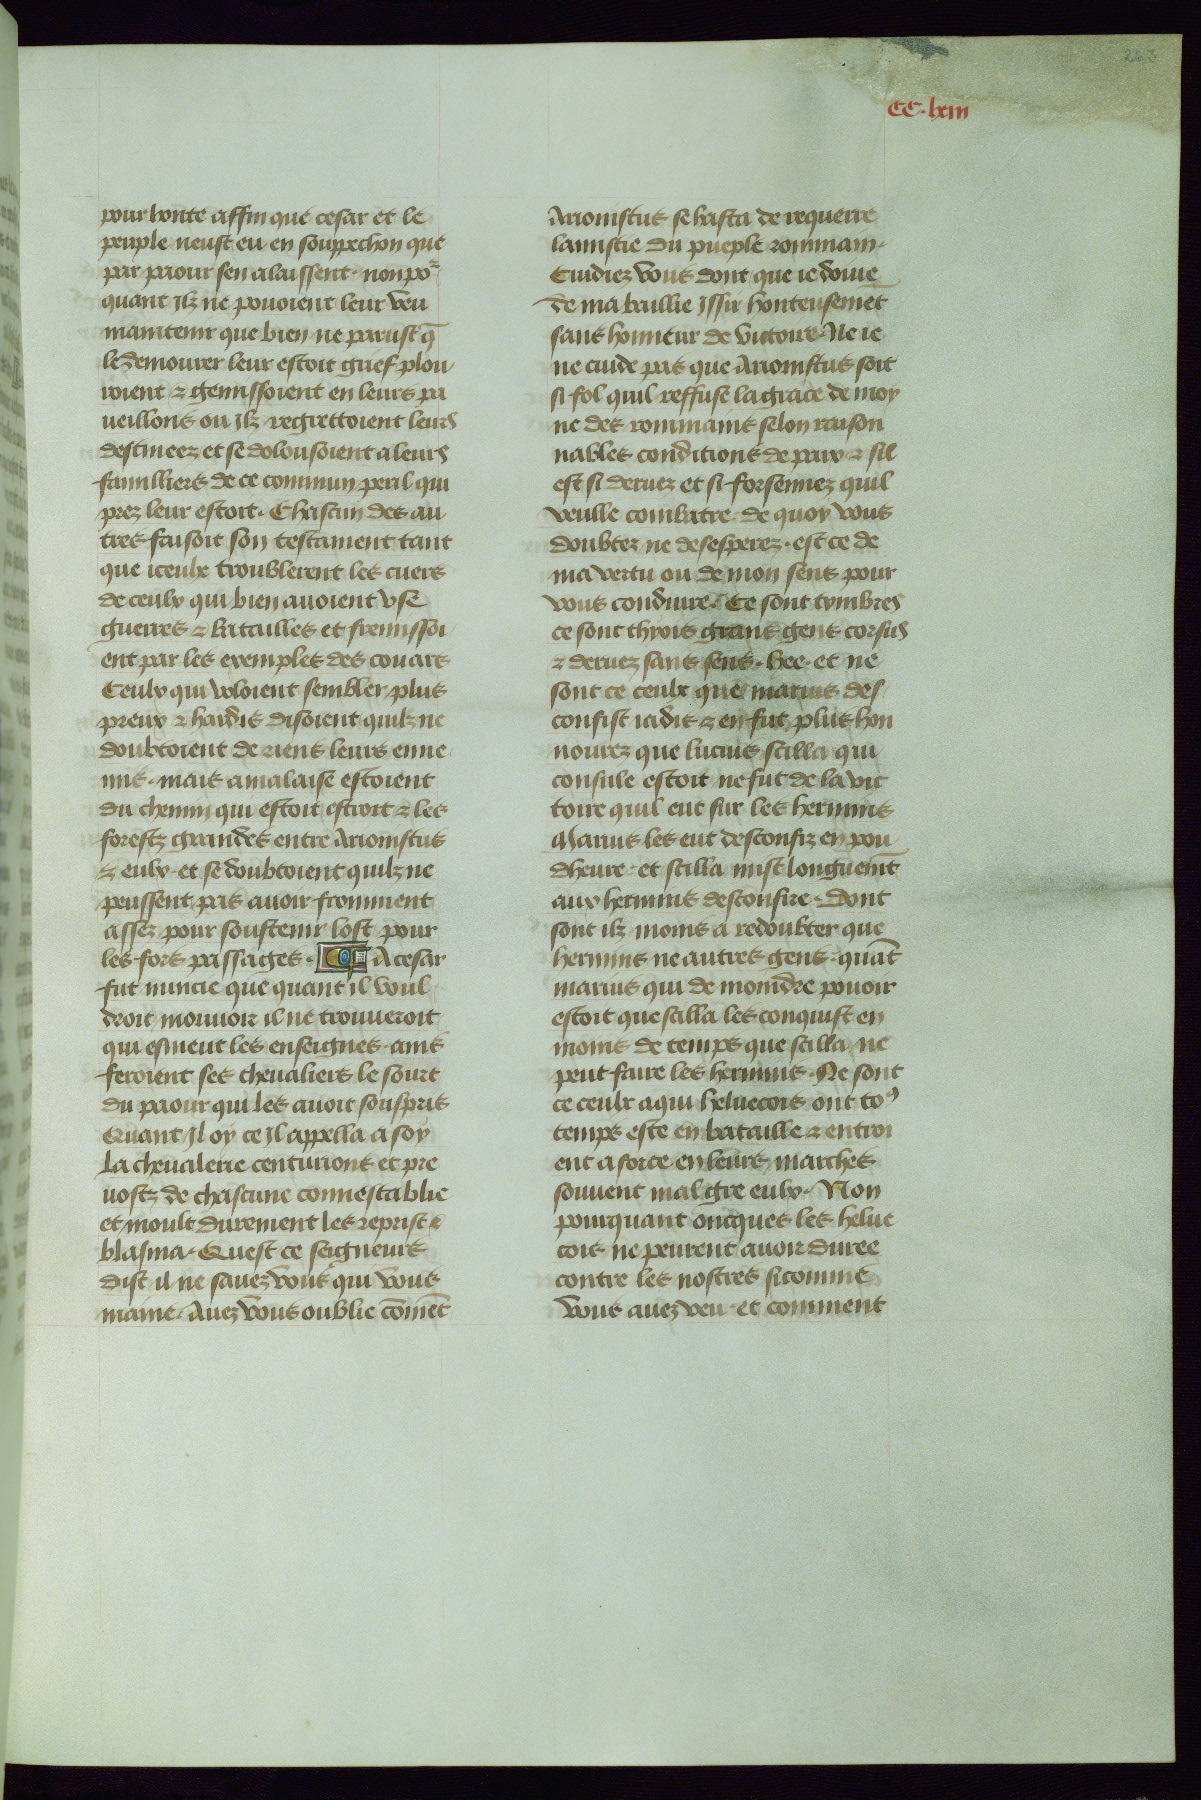 263
CC. lxiii
pour honte affin que cesar et le
peuple neust eu en souppechon que
par paour sen alaissent. non po᷑
quant Ilz ne pouoient leur veu
maintenir que bien ne parust q̄
le demourer leur estoit grief plou
roient ⁊ gemissoient en leurs pa
ueillons ou Ilz regrettoient leurs
destineez et se dolousoient a leurs
familliers de ce commun peril qui
prez leur estoit. Chascun des au
tres faisoit son testament tant
que iceulx troublerent les cuers
de ceulx qui bien auoient vse
guerres ⁊ batailles et fremissoi
ent par les exemples des couars
Ceulx qui voloient sembler plus
preux ⁊ hardis disoient quilz ne
doubtoient de riens leurs enne
mis. mais a malaise estoient
du chemin qui estoit estroit ⁊ les
forestz grandes entre Arionistus
⁊ eulx. et se doubtoient quilz ne
peussent pas auoir fromment
assez pour soustenir lost pour
les fors passages. A cesar
fut nuncie que quant il voul
droit mouuoir il ne trouueroit
qui esmeut les enseignes. ains
feroient ses cheualiers le sourt
du paour qui les auoit souspris
Quant Il oy ce Il appella a soy
la cheualerie centurions et pre
uostz de chascune connestablie
et moult durement les reprist ⁊
blasma. Quest ce seigneurs
dist il ne sauez vous qui vous
maine. Auez vous oublie cōmēt
Arionistus se hasta de requerre
lamistie du pueple rommain.
Cuidiez vous dont que ie doiue
de ma baillie Issir honteusemēt
sans honneur de victoire. Ne ie
ne cuide pas que Arionistus soit
si fol quil reffuse la grace de moy
ne des rommains selon raison
nables conditions de paix ⁊ sil
est si deruez et si forsennez quil
veulle combatre. de quoy vous
doubtez ne desesperez. est ce de
ma vertu ou de mon sens pour
vous conduire. Ce sont tymbres
ce sont thyois grans gens corsus
⁊ deruez sans sens. hee. et ne
sont ce ceulx que marius des
confist iadis ⁊ en fut plus hon
nourez que lucius scilla qui
consule estoit ne fut de la vic
toire quil eut sur les hermins
Marius les eut desconfiz en pou
dheure. et scilla mist longuemt̄
aux hermins desconfire. Dont
sont ilz moins a redoubter que
hermins ne autres gens. quāt
marius qui de moindre pouoir
estoit que scilla les conquist en
moins de temps que scilla ne
peut faire les hermins. Ne sont
ce ceulx a qui heluecois ont toꝰ
temps este en bataille ⁊ entroi
ent a force en leurs marches
souuent mal gre eulx. Non
pourquant oncques les helue
cois ne peurent auoir duree
contre les nostres si comme
vous auez veu. et comment